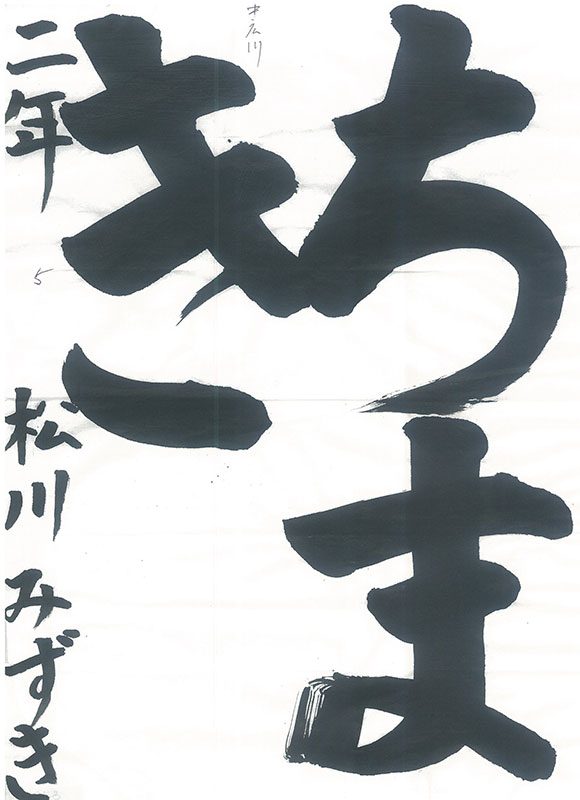 ちま
き
広川
二年 松川 みずき
5